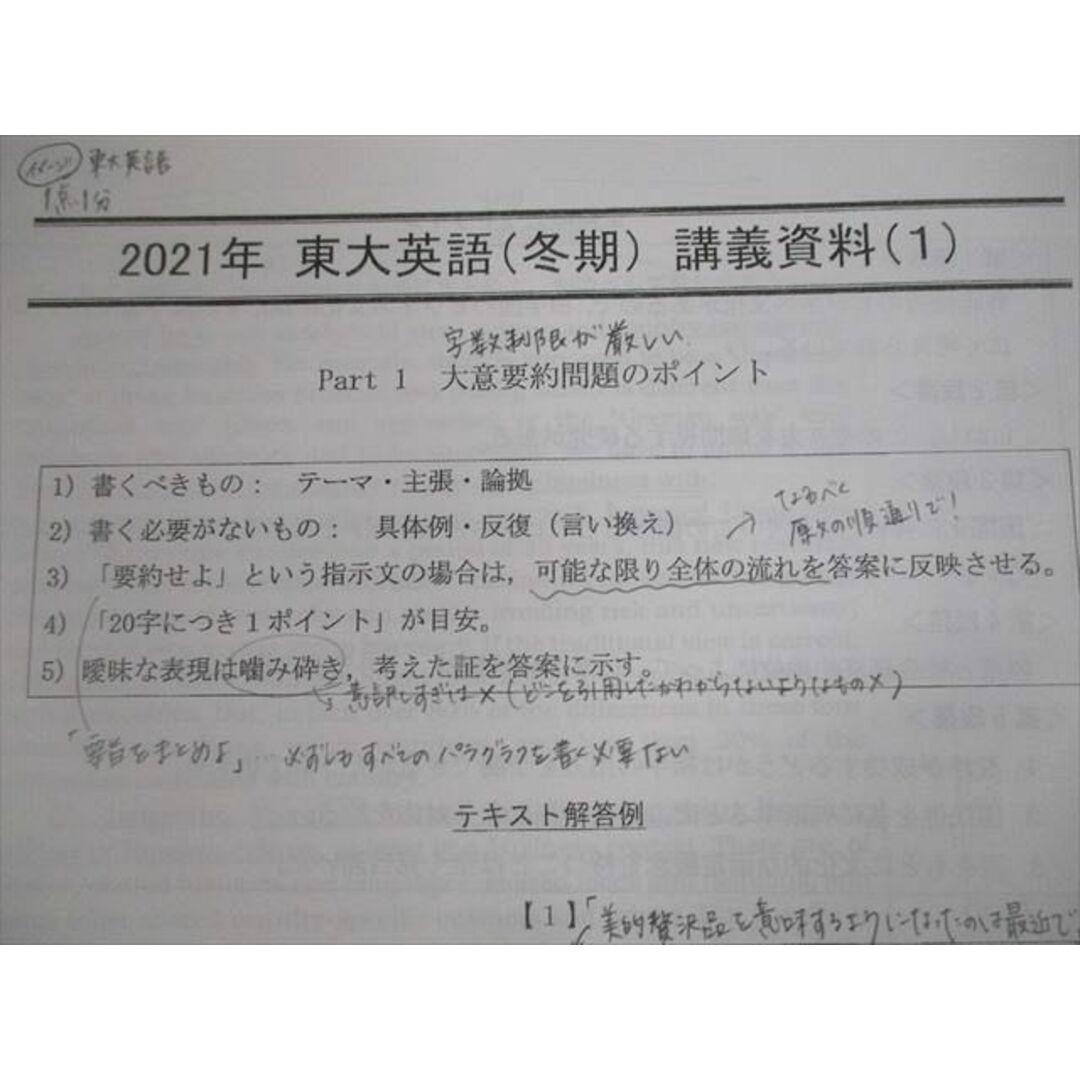 イメージ 東大英語
1点1分
2021年 東大英語(冬期) 講義資料(1)
字数制限が厳しい
Part 1 大意要約問題のポイント
1) 書くべきもの: テーマ・主張・論拠
2) 書く必要がないもの: 具体例・反復(言い換え) → なるべく
原文の順通りで!
3) 「要約せよ」という指示文の場合は,可能な限り全体の流れを答案に反映させる。
4) 「20字につき1ポイント」が目安。
5) 曖昧な表現は噛み砕き,考えた証を答案に示す。
意訳しすぎは×(どこを引用したかわからないようなもの×)
「要旨をまとめよ」…必ずしもすべてのパラグラフを書く必要ない
テキスト解答例
【1】「美的贅沢品を意味するようになったのは最近で